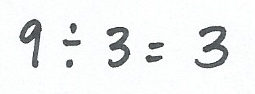 9 ÷ 3 = 3